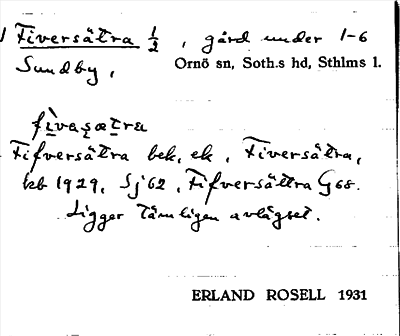 1 Fiversätra 1/2, gård under 1-6
Sundby, Ornö sn, Soth.s hd, Sthlms l.
fivasætra
Fifversättra bek. ek., Fiversätra,
kb 1929, Sj 62, Fifversättra G 68.
Ligger tämligen avlägset.
ERLAND ROSELL 1931